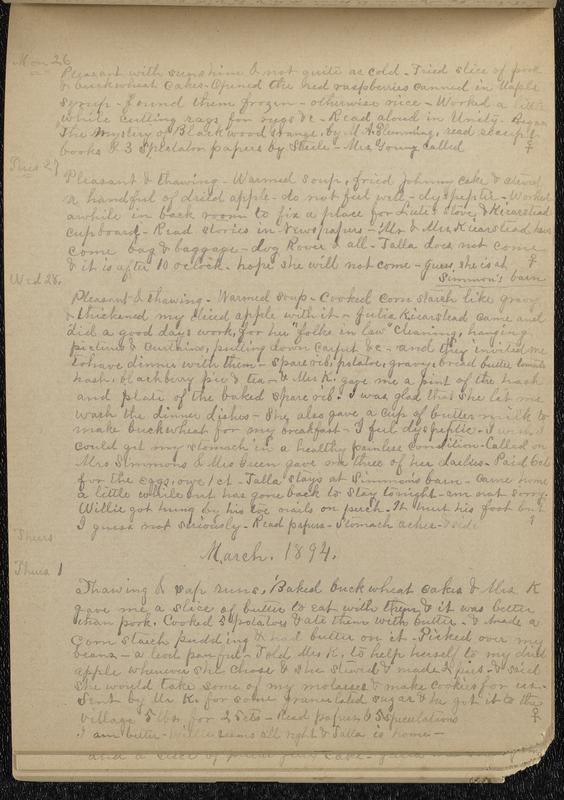 Mon 26
Pleasant with sunshine & not quite as cold - Fried slice of pork
& buckwheat cakes - Opened the red raspberries canned in Maple
syrup - found them frozen - otherwise nice - Worked a little
while cutting rags for rugs &c - Read aloud in Unity - Began
The Mystery of Blackwood Grange, by M. A. Flemming, read
books & 3 Spectator papers by Steele - Mrs Young called
Tues 27
Pleasant & thawing - Warmed soup, fried Johnny cake & stewed
a handful of dried apple - do not feel well - dyspeptic - Worked
awhile in back room to fix a place for Julie's stove, & Kicarstead
cupboard - Read stories in Newspapers - Mr & Mrs Kicarstead have
come bag & baggage - dog Rover & all - Talla does not come
& it is after 10 oclock - hope she will not come - guess she is at
Simmon's barn
Wed 28.
Pleasant & thawing - Warmed soup - Cooked corn starch like gravy
& thickened my dried apple with it - Julia Kicarstead came and
did a good days work, for her "folks in law" cleaning, hanging
pictures & curtains, putting down carpet &c - and they invited me
to have dinner with them - spare rib, potatoe, gravy, bread butter tomato
hash, blackbury pie & tea - & Mrs K. gave me a pint of the hash
and plate of the baked spare rib. I was glad that she let me
wash the dinner dishes - She also gave a cup of buttermilk to
make buckwheat for my breakfast - I feel dyspeptic - I wish I
could get my stomach in a healthy painless condition - Called on
Mrs Simmons & Mrs Green gave me three of her dailies - Paid 6cts
for the eggs, owe 1ct - Talla stays at Simmons barn - came home
a little while but has gone back to stay tonight - am not sorry.
Willie got hung by his toe nails on porch. It hurt his foot but
I guess not seriously - Read papers - Stomach aches - & side
Thurs
March. 1894.
Thurs 1
Thawing & sap runs. Baked buckwheat cakes & Mrs K
gave me a slice of butter to eat with them & it was better
than pork. Cooked 5 potatoes & ate them with butter - & made a
corn starch pudding & had butter on it - Picked over my
beans - a pan - Told Mrs K, to help herself to my dried
apple whenever she chose & she stewed & made 2 pies - & said
she would take some of my molasses & make cookies for us -
Sent by Mr K. for some granulated sugar & he got it to the
village 5 lbs. for 25 cts - Read papers & 5 speculations
I am better - Willie seems all right & Talla is home -